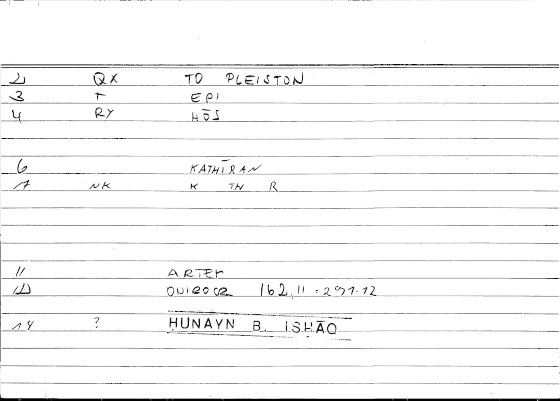 2 QX TO PLEISTON
3 T EPI
4 RY HŌS
6 KATHĪRAN
7 NK K TH R
11 ARTEM
12 162,11 = 291.12
14 ? HUNAYN B. ISHĀQ